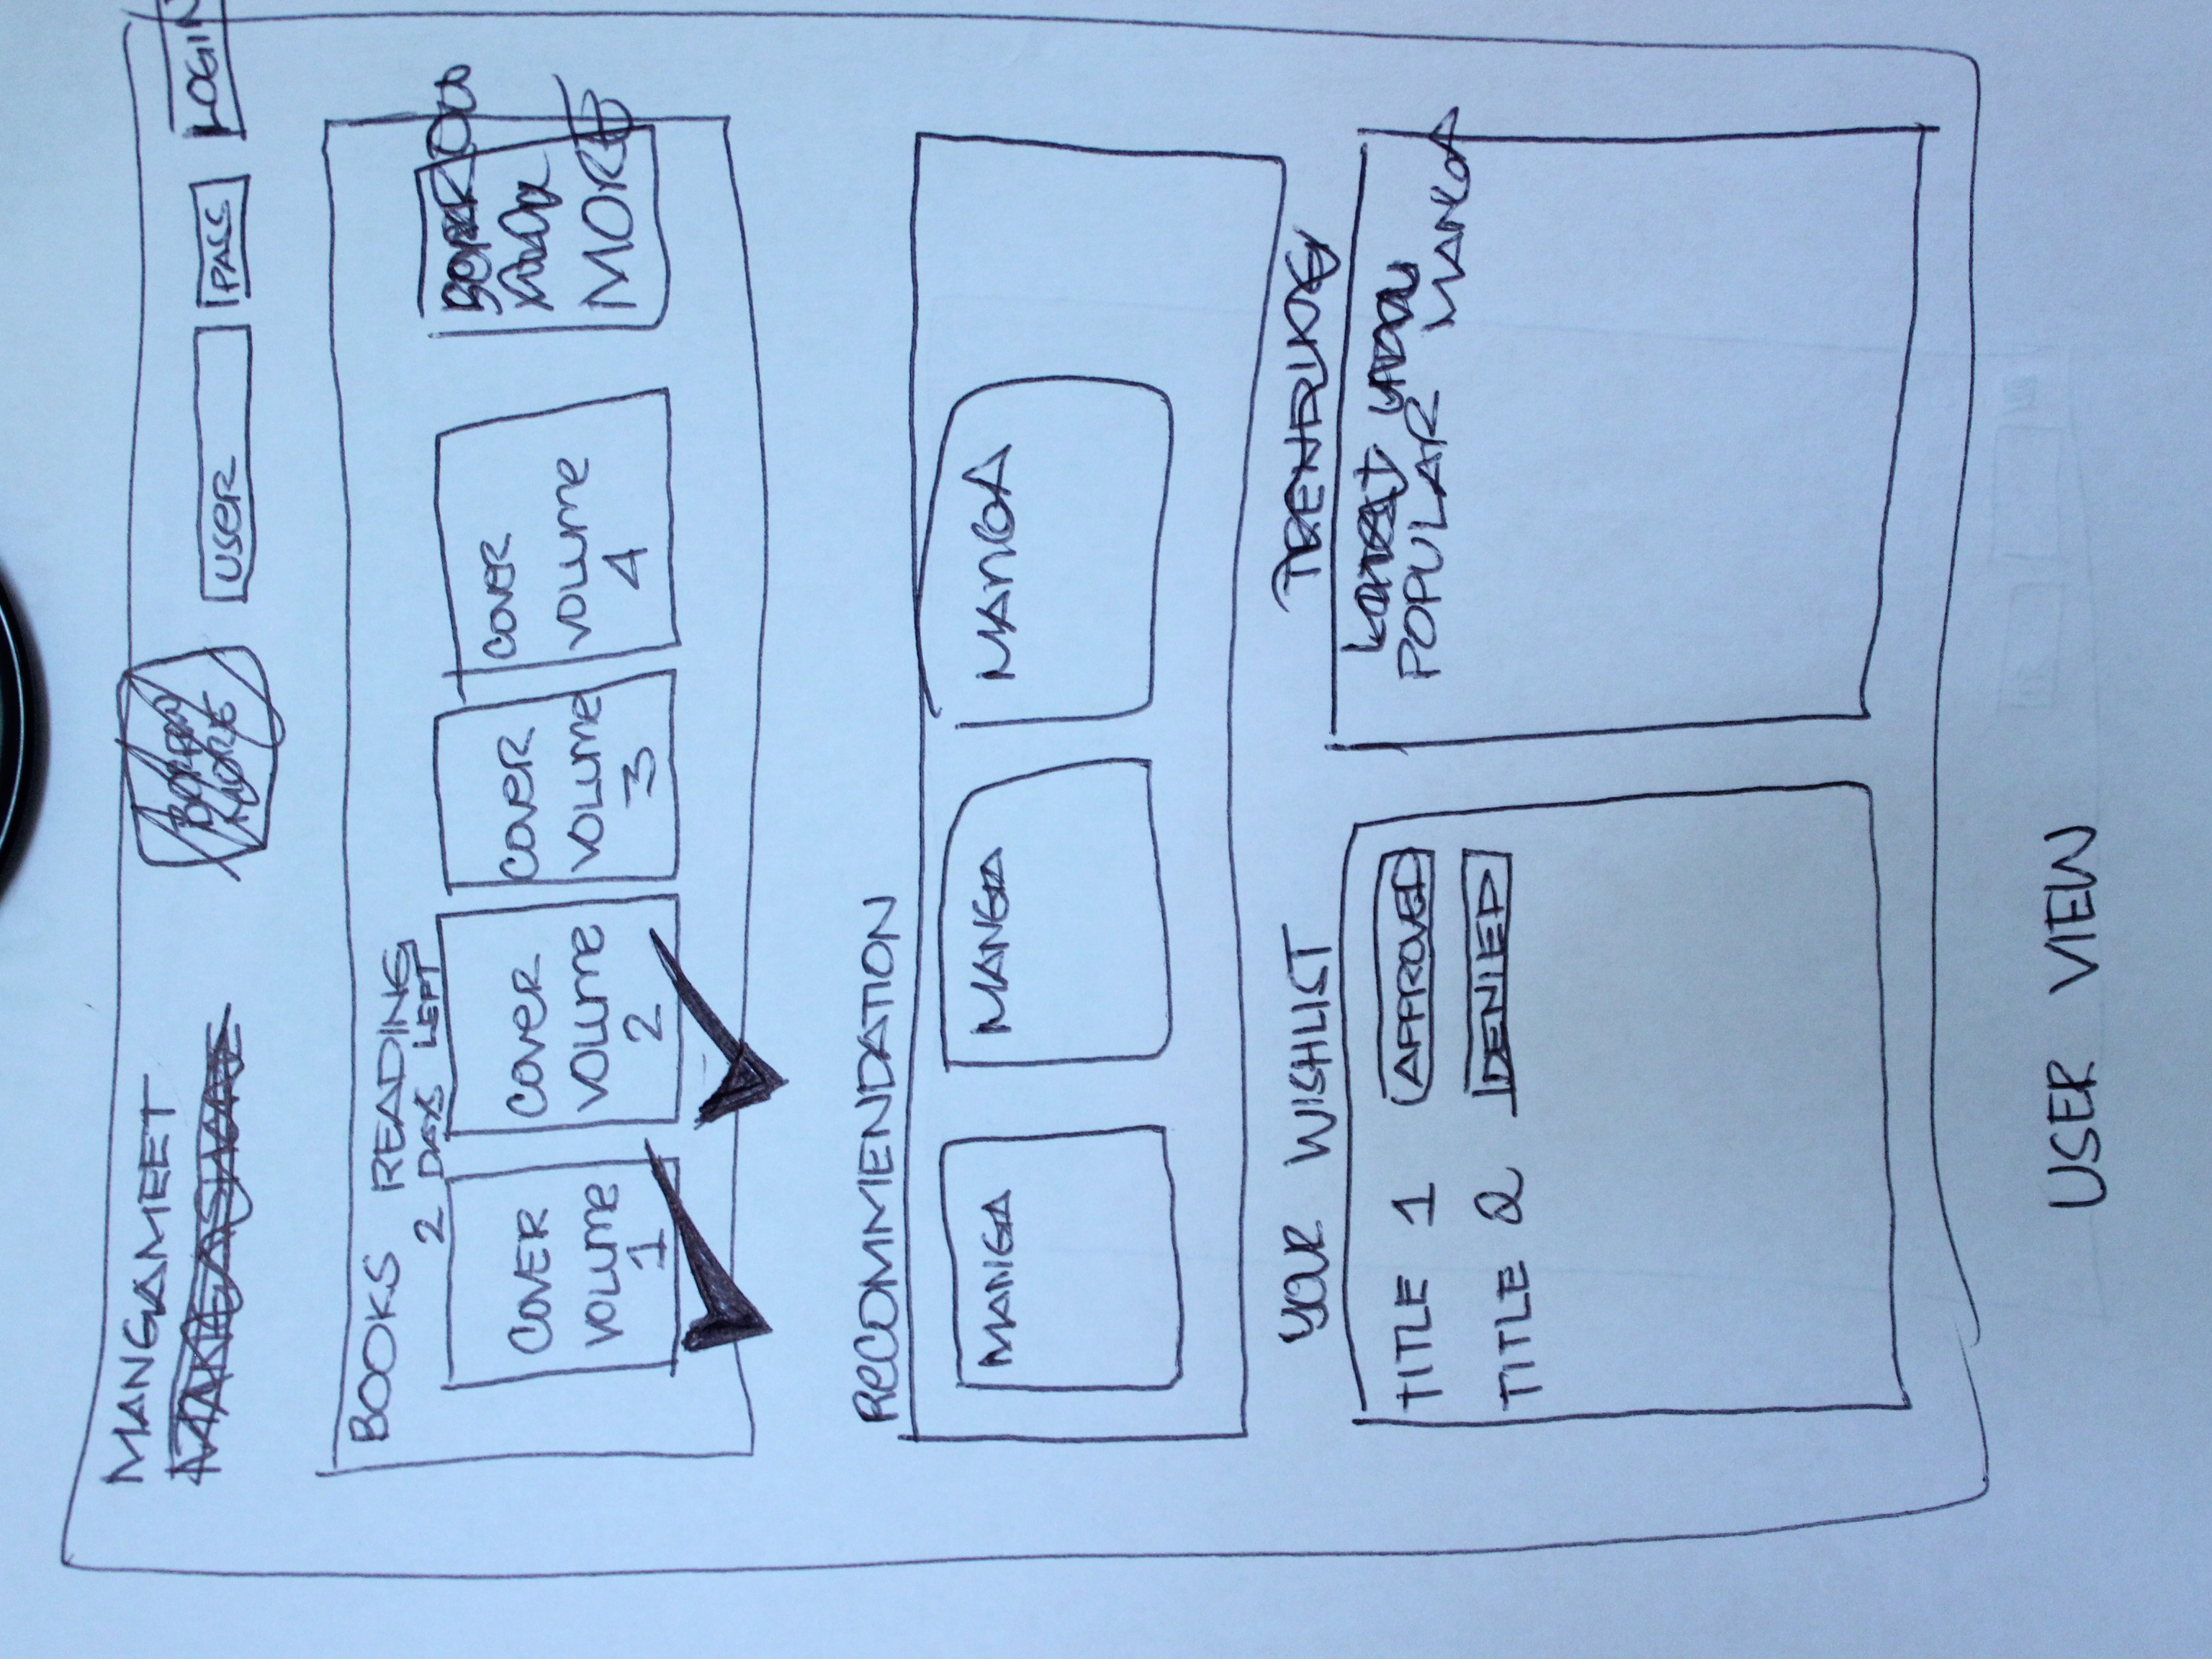 MANGAMEET
MANGASHARE
BORROW
MORE
USER
PASS
LOGIN
BOOKS READING
2 DAYS LEFT
COVER
VOLUME
1
COVER
VOLUME
2
COVER
VOLUME
3
COVER
VOLUME
4
BORROW
MORE
RECOMMENDATION
MANGA
MANGA
MANGA
YOUR WISHLIST
TITLE 1 APPROVED
TITLE 2 DENIED
TRENDING
LATEST
POPULAR MANGA
USER VIEW